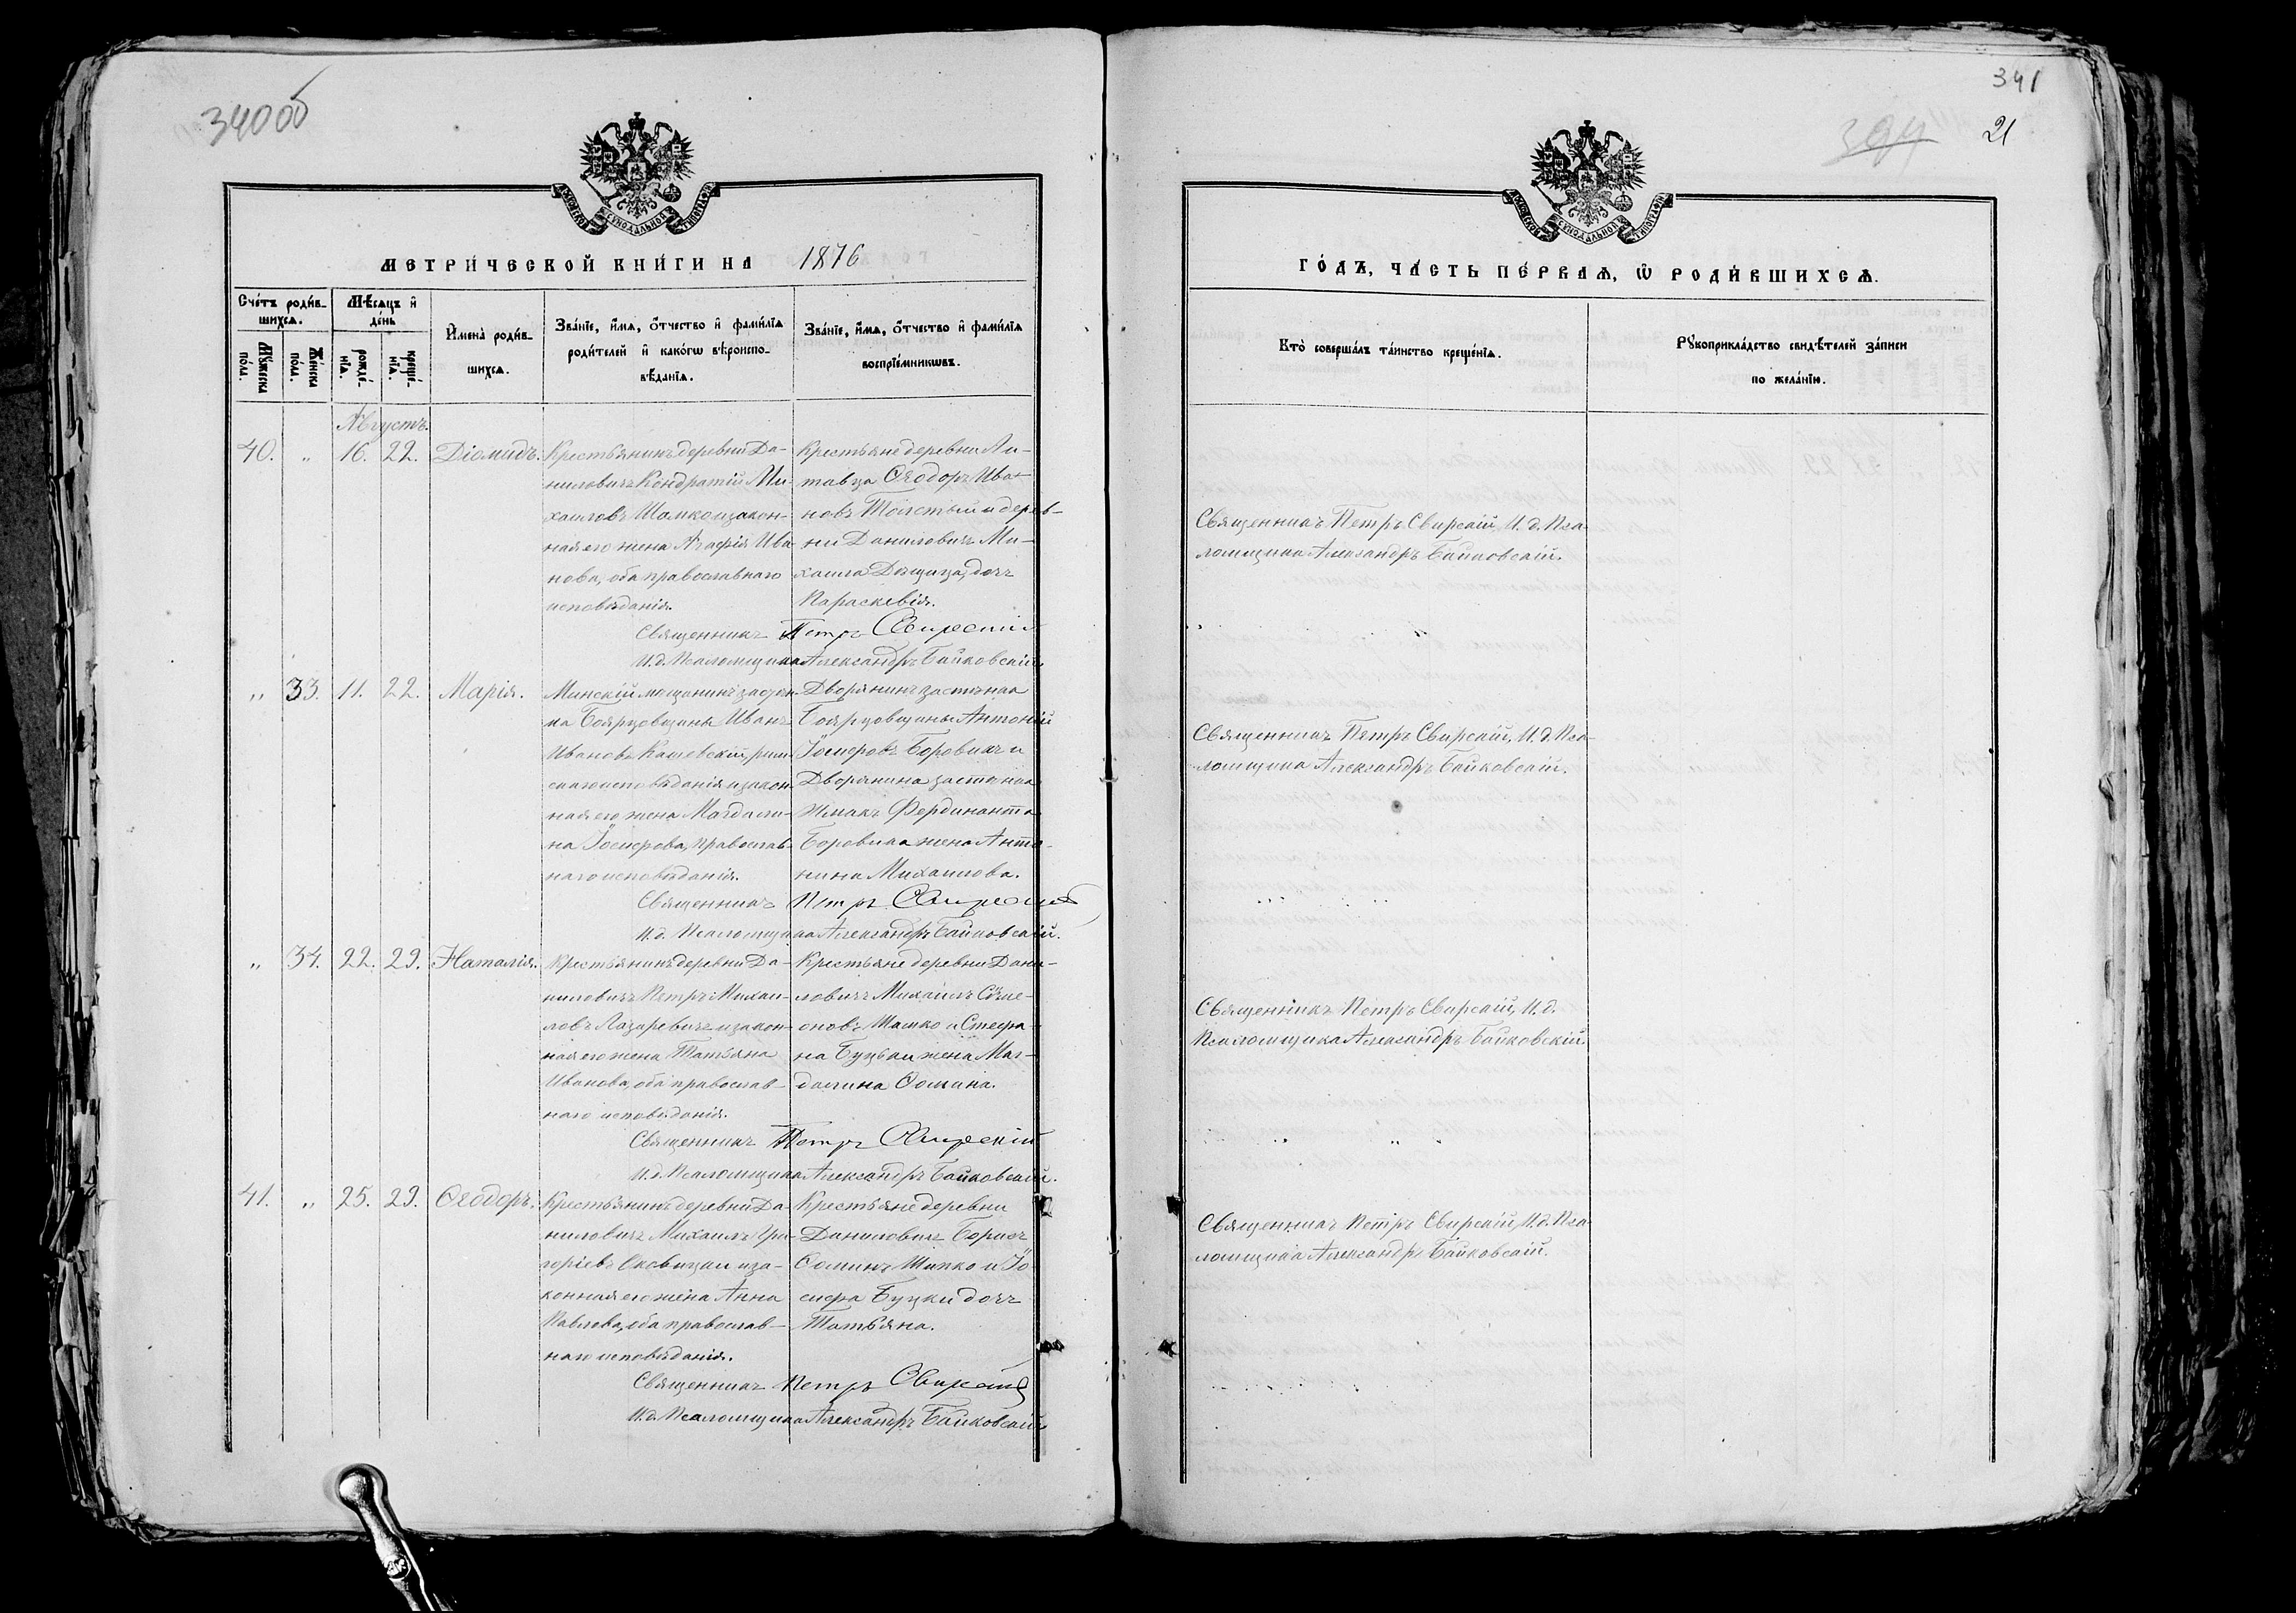 340об
МЕТРИ́ЧЕСКОЙ КНИ́ГИ НА 1876
Сче́тъ роди́в-
шихсѧ.
Мѣ́сѧцъ и҆
де́нь
И҆мена̀ роди́в-
шихсѧ.
Зва́нїе, и҆́мѧ, ѻ҆́тчество и҆ фамі́лїѧ
роди́телей и҆ како́гѡ вѣроиспо-
вѣ́данїѧ.
Зва́нїе, и҆́мѧ, ѻ҆́тчество и҆ фамі́лїѧ
воспрїе́мникѡвъ.
Мꙋ́жеска
по́ла.
Же́нска
по́ла.
рожде́-
нїѧ.
креще́-
нїѧ.
Августъ.
40. „ 16. 22. Діомидъ. Крестьянинъ деревни Да-
ниловичъ Кондратій Ми-
хаиловъ Шамко и закон-
ная его жена Агафія Ива-
нова, оба православнаго
исповѣданія.
Крестьяне деревни Ли-
тавца Ѳеодоръ Ива-
новъ Толстый и дерев-
ни Даниловичъ Ми-
хаила дочь
Параскевія.
Священникъ Петръ Свирскій
И.д. Псаломщика Александръ Байковскій.
„ 33. 11. 22. Марія. Минскій мещанинъ застѣн-
ка Боярцовщины Иванъ
Ивановъ Кашевскій, рим-
скаго исповѣданія и закон-
ная его жена Магдали-
на Іосифова, православ-
наго исповѣданія.
Дворянинъ застѣнка
Боярцовщины Антоній
Іосифовъ Боровикъ и
Дворянина застѣнка
Жмакъ Фердинанта
Боровика жена Анто-
нина Михаилова.
Священникъ Петръ Свирскій
И.д. Псаломщика Александръ Байковскій.
„ 34. 22. 29. Наталія. Крестьянинъ деревни Да-
ниловичъ Петръ Михаи-
ловъ Лазаревичъ и закон-
ная его жена Татьяна
Иванова, оба православ-
наго исповѣданія.
Крестьяне деревни Дани-
ловичъ Михаилъ Симе-
оновъ Шамко и Стефа-
на Буцьки жена Маг-
далина Ѳомина.
Священникъ Петръ Свирскій
И.д. Псаломщика Александръ Байковскій.
41. „ 25. 29. Ѳеодоръ. Крестьянинъ деревни Да-
ниловичъ Михаилъ Гри-
горіевъ и за-
конная его жена Анна
Павлова, оба православ-
наго исповѣданія.
Крестьяне деревни
Даниловичъ Борисъ
Ѳоминъ и Іо-
сифа Буцки дочь
Татьяна.
Священникъ Петръ Свирскій
И.д. Псаломщика Александръ Байковскій
341
21
ГО́ДЪ, ЧА́СТЬ ПЕ́РВАѦ, Ѡ҆ РОДИ́ВШИХСѦ.
Кто̀ соверша́лъ та́инство креще́нїѧ.
Рꙋкоприкла́дство свидѣ́телей за́писи
по жела́нїю.
Священникъ Петръ Свирскій, И. д. Пса-
ломщика Александръ Байковскій.
Священникъ Петръ Свирскій, И. д. Пса-
ломщика Александръ Байковскій.
Священникъ Петръ Свирскій, И. д.
Псаломщика Александръ Байковскій.
Священникъ Петръ Свирскій, И. д. Пса-
ломщика Александръ Байковскій.